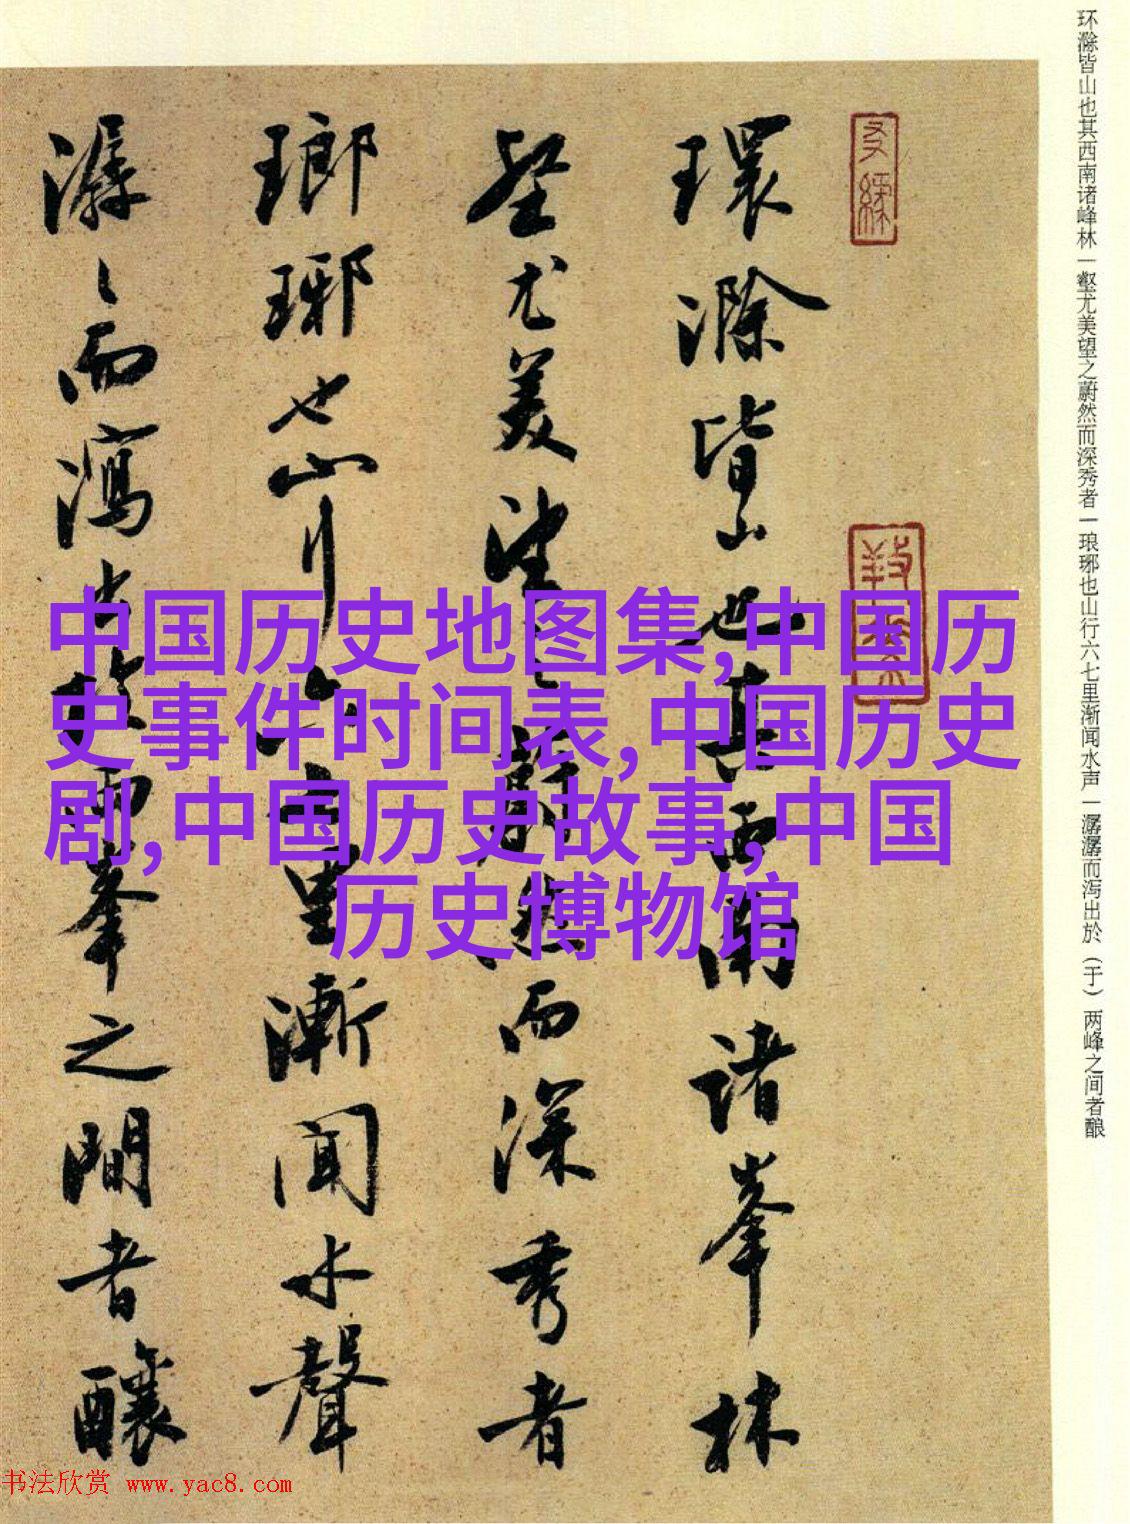 环滁皆山也其西南诸峰林一壑尤美望之蔚然而深秀者一琅琊也山行六七里渐闻水声一潺潺而泻出於（于）两峰之间者酿
環滁皆山也其西南諸峯林
壑尤美望之蔚然而深秀者
瑯琊也山行六七里漸聞水聲
潺々而瀉出於兩峯之間者釀
中国历史地图集,中国历
史事件时间表,中国历史
剧,中国历史故事,中国
历史博物馆
书法欣赏 www.yac8.com